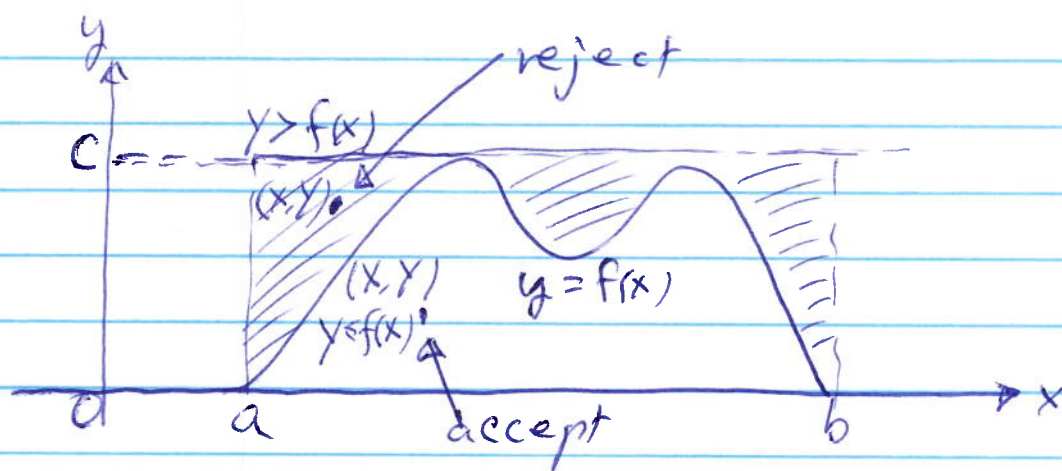 y
reject
Y>f(X)
c
(X,Y)
(X,Y)
y=f(x)
Y≤f(X)
0
a
b
x
accept